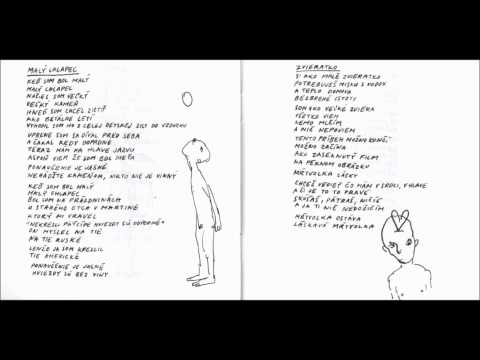 MALÝ CHLAPEC
KEĎ SOM BOL MALÝ
MALÝ CHLAPEC
NAŠIEL SOM VEĽKÝ
VEĽKÝ KAMEŇ
HNEĎ SOM CHCEL ZISTIŤ
AKO BETÁLNE LETÍ
VYHODIL SOM HO Z CELEJ DETSKEJ SILY DO VZDUCHU
UPRENE SOM SA DÍVAL PRED SEBA
A ČAKAL KEDY DOPADNE
TERAZ MÁM NA HLAVE JAZVU
ASPOŇ VIEM ŽE SOM BOL DIEŤA
PONAUČENIE JE JASNÉ
NEHÁDŽTE KAMEŇOM, NIKTO NIE JE VINNÝ
KEĎ SOM BOL MALÝ
MALÝ CHLAPEC
BOL SOM NA PRÁZDNINÁCH
U STARÉHO OTCA V MARTINE
KTORÝ MI VRAVEL
"NEKRESLI PÄŤCÍPE HVIEZDY SÚ ODPORNÉ"
ON MYSLEL NA TIE
NA TIE RUSKÉ
LENŽE JA SOM KRESLIL
TIE AMERICKÉ
PONAUČENIE JE JASNÉ
HVIEZDY SÚ BEZ VINY
ZVIERATKO
SI AKO MALÉ ZVIERATKO
POTREBUJEŠ MISKU S VODOU
A TEPLO DOMOVA
BEZBRANNÉ ISTOTY
SOM AKO VEĽKÉ ZVIERA
VŠETKO VIEM
LENŽE MLČÍM
A NIČ NEPOVIEM
TENTO PRÍBEH MOŽNO KONČÍ,
MOŽNO ZAČÍNA
AKO ZASEKNUTÝ FILM
NA PEKNOM OBRÁZKU
MŔTVOLKA LÁSKY
CHCEŠ VEDIEŤ ČO MÁM V SRDCI, V HLAVE
A ČI JE TO TO PRAVÉ
SKÚŠAŠ, PÁTRAŠ, NIČÍŠ
A JA TI NIČ NEDOSIEŽIM
MŔTVOLKA OSTÁVA
LÁSKAVÁ MŔTVOLKA